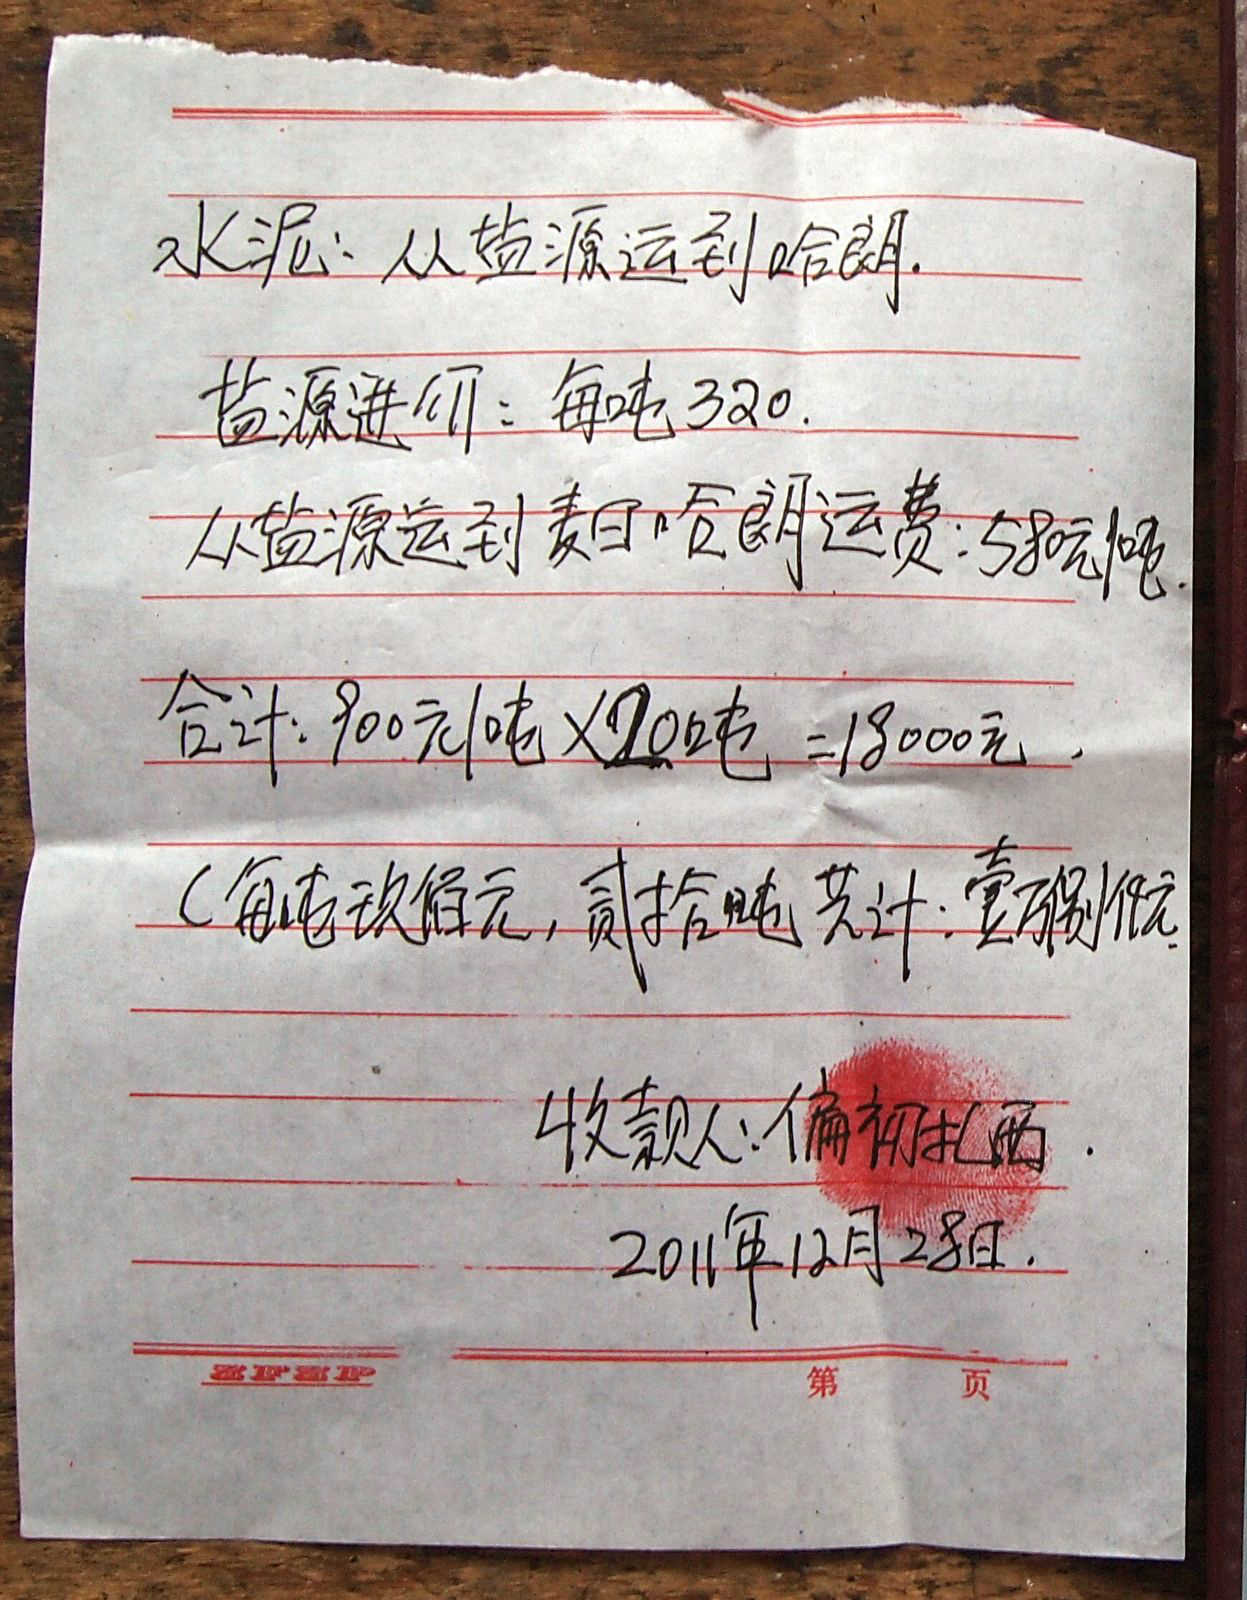 水泥：从盐源运到哈朗.
盐源进价：每吨320.
从盐源运到麦日哈朗运费：580元/吨.
合计：900元/吨×20吨=18000元.
(每吨玖佰元，贰拾吨共计：壹万捌仟元.
收款人：偏初扎西.
2011年12月28日.
第 页